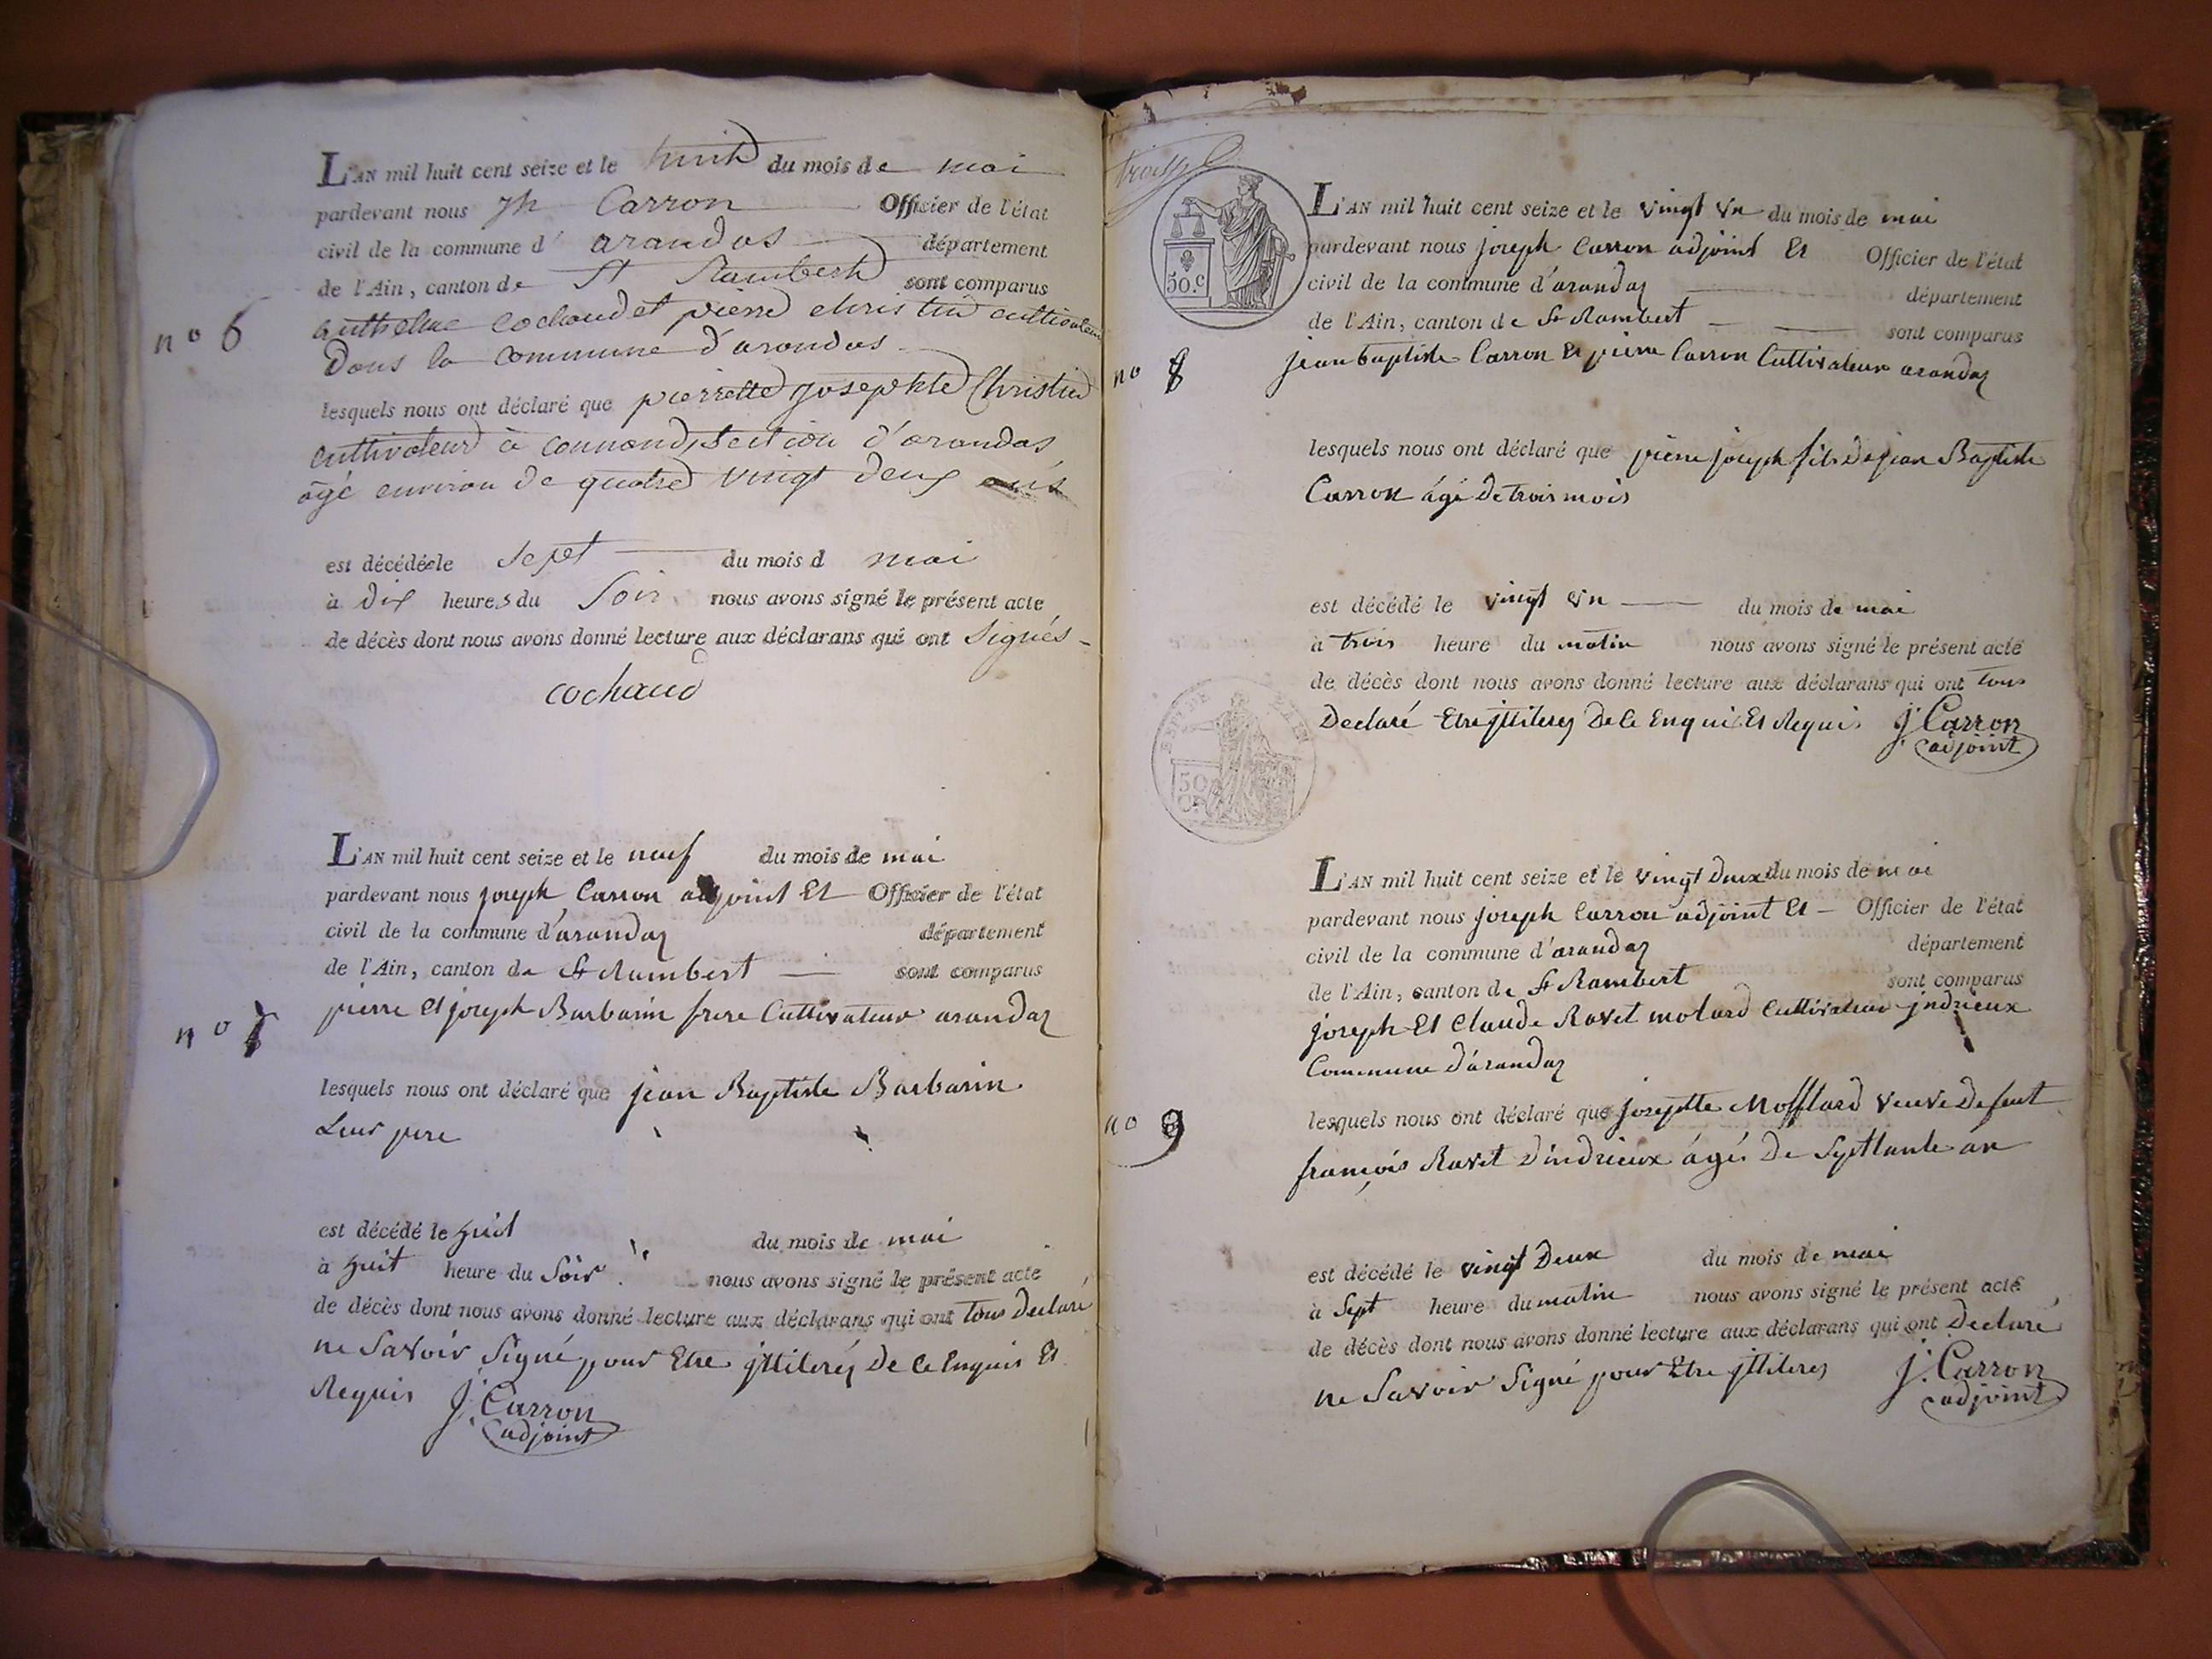 L'AN mil huit cent seize et le huit du mois de mai
pardevant nous jh Carron Officier de l'état
civil de la commune d' arandas département
de l'Ain, canton de St Rambert sont comparus
anthelme cochaud et pierre christin cultivateur
Dans la commune d'arandas
n° 6
lesquels nous ont déclaré que pierrette josephte Christin
cultivateur à connand, section d'arandas
âgé environ de quatre vingt deux ans
est décédée le sept du mois d mai
à dix heures du Soir nous avons signé le présent acte
de décès dont nous avons donné lecture aux déclarans qui ont signés
cochaud
L'AN mil huit cent seize et le neuf du mois de mai
pardevant nous joseph Carron adjoint Et Officier de l'état
civil de la commune d'arandaz département
de l'Ain, canton de St Rambert sont comparus
pierre Et joseph Barbarin frere Cultivateur arandaz
n° 7
lesquels nous ont déclaré que jean Baptiste Barbarin
Leur pere
est décédé le huit du mois de mai
à huit heure du Soir nous avons signé le présent acte
de décès dont nous avons donné lecture aux déclarans qui ont tous Declaré
ne Savoir Signé pour Etre jlliterez De ce Enquis Et
Requis J. Carron
adjoint
50.c
L'AN mil huit cent seize et le vingt vn du mois de mai
pardevant nous joseph Carron adjoint Et Officier de l'état
civil de la commune d'arandaz département
de l'Ain, canton de St Rambert sont comparus
n° 8
jean baptiste Carron Et pierre Carron Cultivateur arandaz
lesquels nous ont déclaré que pierre joseph fils de jean Baptiste
Carron âgé De trois mois
est décédé le vingt vn du mois de mai
à trois heure du matin nous avons signé le présent acte
de décès dont nous avons donné lecture aux déclarans qui ont tous
Declaré Etre jlliterez De Ce Enquis Et Requis J. Carron
adjoint
50
L'AN mil huit cent seize et le vingt Deux du mois de mai
pardevant nous joseph Carron adjoint Et Officier de l'état
civil de la commune d'arandaz département
de l'Ain, canton de St Rambert sont comparus
joseph Et Claude Ravet molard Cultivateur jndrieux
Commune D'arandaz
n° 9
lesquels nous ont déclaré que josephte Mofflard veuve De feut
françois Ravet D'indrieux âgé De Septtante an
est décédé le vingt Deux du mois de mai
à Sept heure du matin nous avons signé le présent acte
de décès dont nous avons donné lecture aux déclarans qui ont Declaré
ne Savoir Signé pour Etre jlliterez J. Carron
adjoint